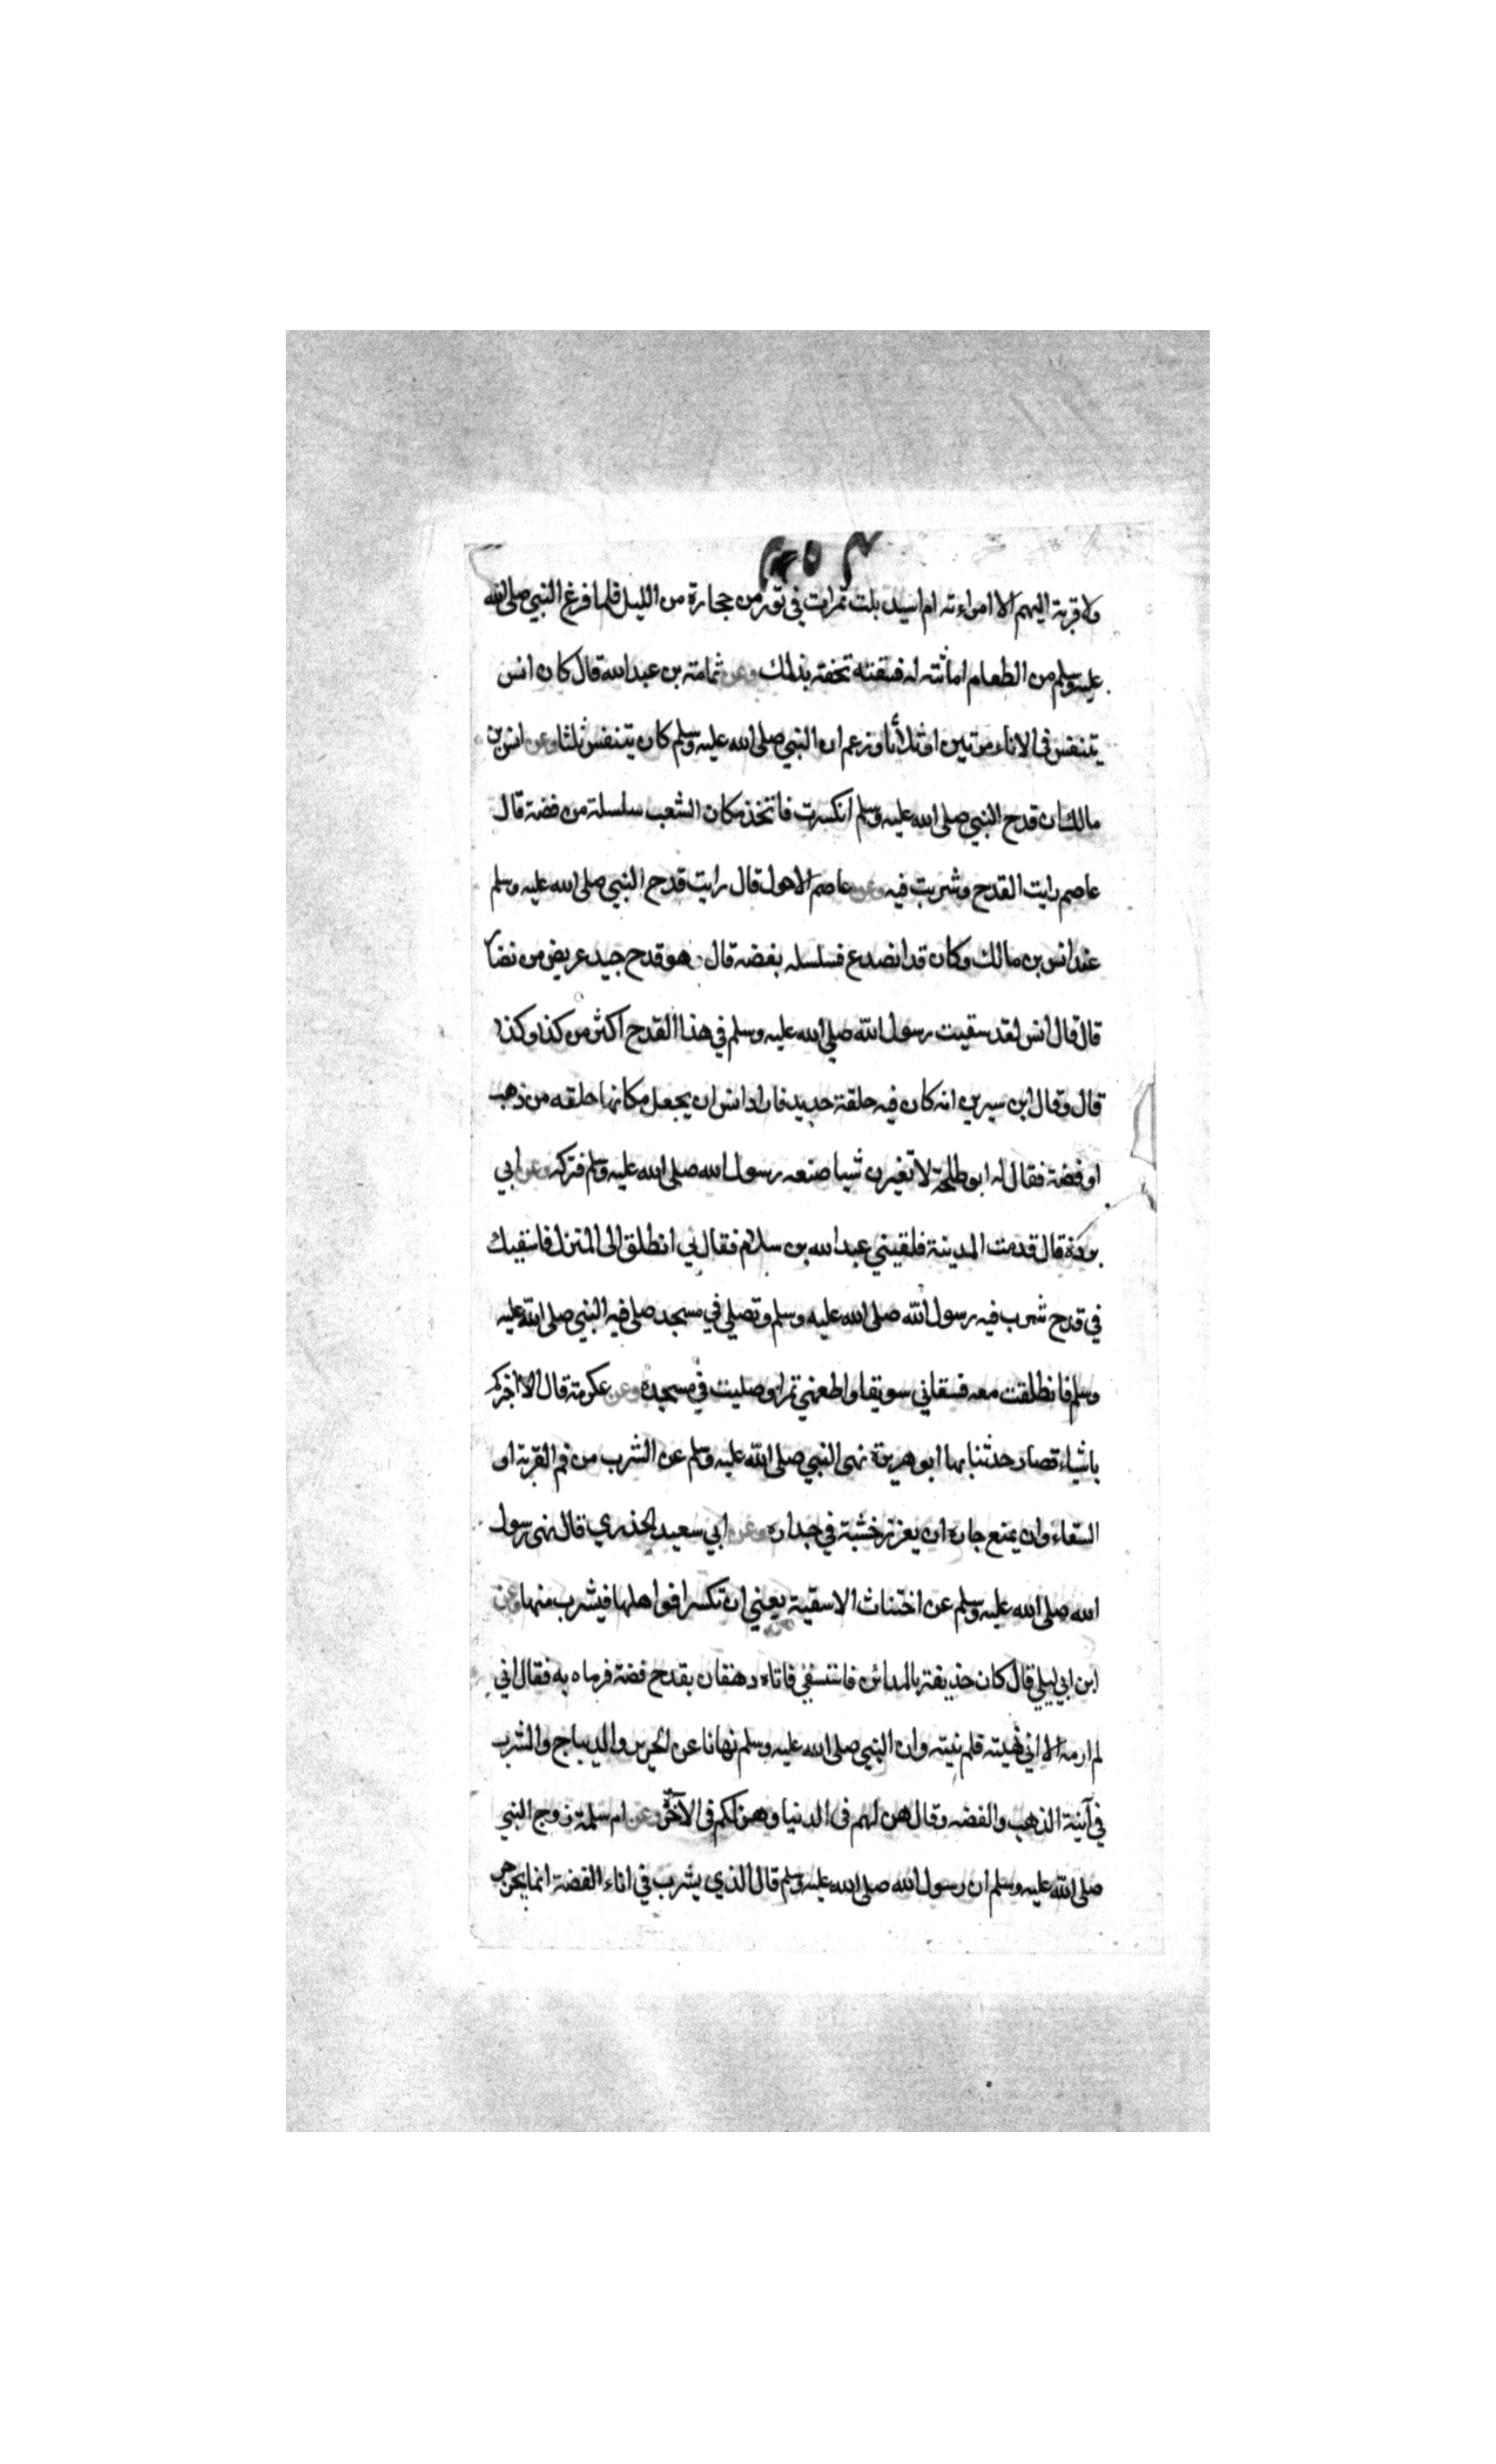 ولا قربة اليهم الا امراءته ام اسيد بلت تمرات في تور من حجارة من الليل فلما فرغ النبي صلى الله
عليه وسلم من الطعام اماثته له فسقته تتحفه بذلك وعن ثمامة بن عبد الله قال كان انس
يتنفس في الاناء مرتين او ثلاثا وزعم ان النبي صلى الله عليه وسلم كان يتنفس ثلثا وعن انس بن
مالك ان قدح النبي صلى الله عليه وسلم انكسرت فاتخذ مكان الشعب سلسلة من فضة قال
عاصم رايت القدح وشربت فيه وعن عاصم الاحول قال رايت قدح النبي صلى الله عليه وسلم
عند انس بن مالك وكان قد انصدع فسلسله بفضه قال هو قدح جيد عريض من نضار
قال قال انس لقد سقيت رسول الله صلى الله عليه وسلم في هذا القدح اكثر من كذا وكذا
قال وقال ابن سيرين انه كان فيه حلقة حديد فاراد انس ان يجعل مكانها حلقه من ذهب
او فضة فقال له ابو طلحة لا تغيرن شيا صنعه رسول الله صلى الله عليه وسلم فتركه وعن ابي
بردة قال قدمت المدينة فلقيني عبد الله بن سلام فقال لي انطلق الى المنزل فاسقيك
في قدح شرب فيه رسول الله صلى الله عليه وسلم وتصلي في مسجد صلى فيه النبي صلى الله عليه
وسلم فانطلقت معه فسقاني سويقا واطعمني تمرا وصليت في مسجده وعن عكرمة قال الا اخبركم
باشياء قصار حدثنا بها ابو هريرة نهى النبي صلى الله عليه وسلم عن الشرب من فم القربة او
السقاء وان يمنع جاره ان يغرز خشبة في جداره وعن ابي سعيد الخذري قال نهى رسول
الله صلى الله عليه وسلم عن اختناث الاسقية يعني ان تكسر افواهلها فيشرب منها وعن
ابن ابي ليلي قال كان حذيفة بالمدائن فاستسقى فاتاه دهقان بقدح فضة فرماه به فقال اني
لم ارمه الا اني نهيته فلم ينته وان النبي صلى الله عليه وسلم نهانا عن الحرير والديباج والشرب
في آنية الذهب والفضه وقال هن لهم في الدنيا وهن لكم في الآخرة وعن ام سلمة زوج النبي
صلى الله عليه وسلم ان رسول الله صلى الله عليه وسلم قال الذي يشرب في اناء الفضة انما يجرجر